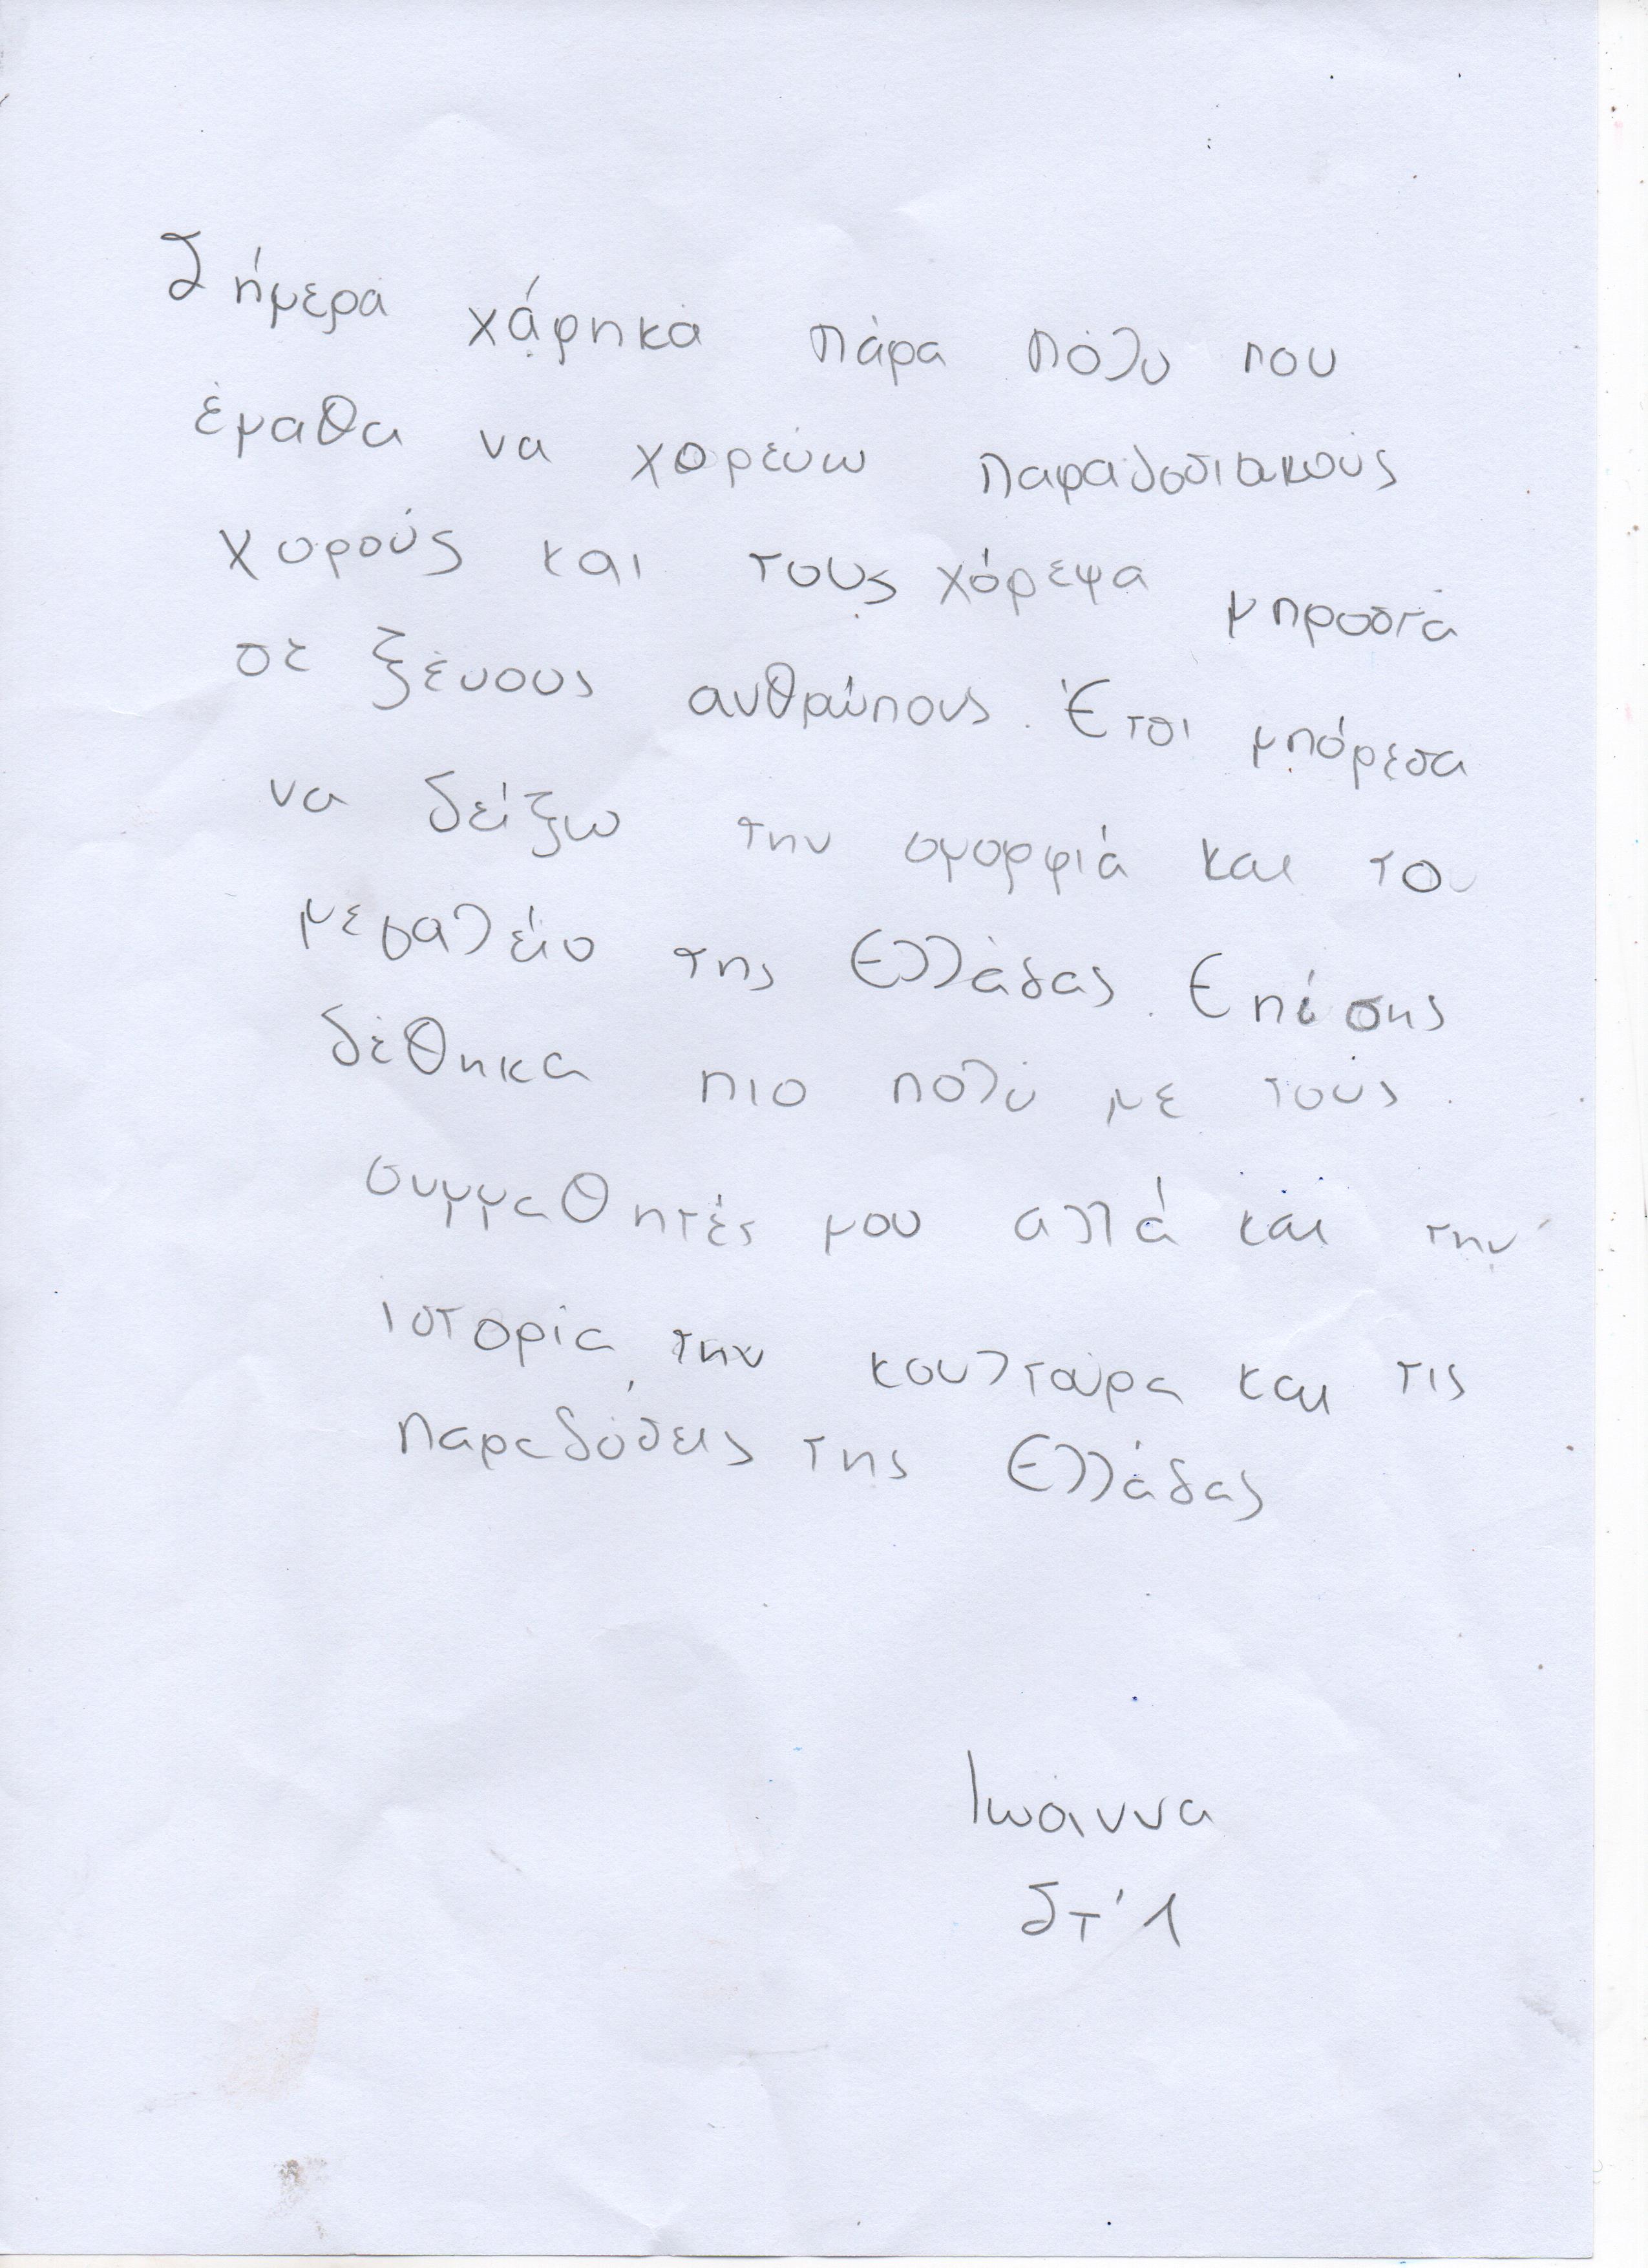 Σήμερα χάρηκα πάρα πολύ που
έμαθα να χορεύω παραδοσιακούς
χορούς και τους χόρεψα μπροστά
σε ξένους ανθρώπους. Έτσι μπόρεσα
να δείξω την ομορφιά και το
μεγαλείο της Ελλάδας. Επίσης
δέθηκα πιο πολύ με τους
συμμαθητές μου αλλά και την
ιστορία, την κουλτούρα και τις
παραδόσεις της Ελλάδας
Ιωάννα
Στ'1